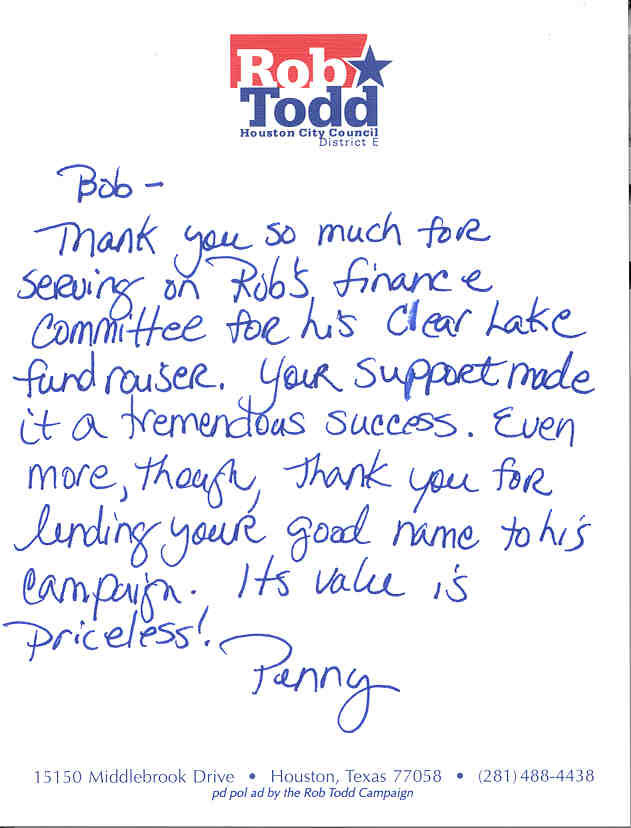 Rob
Todd
Houston City Council
District E
Bob –
Thank you so much for
serving on Rob's finance
committee for his Clear Lake
fundraiser. Your support made
it a tremendous success. Even
more, though, thank you for
lending your good name to his
campaign. Its value is
priceless!
Penny
15150 Middlebrook Drive • Houston, Texas 77058 • (281) 488-4438
pd pol ad by the Rob Todd Campaign